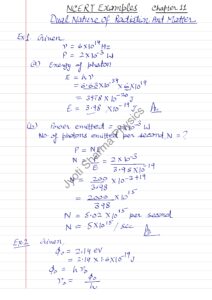 NCERT Examples Chapter 11
Dual Nature of Radiation And Matter
Ex1 Given,
ν = 6 × 10¹⁴ Hz
P = 2 × 10⁻³ W
(a) Energy of photon
E = hν
E = 3.98 × 10⁻¹⁹ J
(b) Power emitted = 2 × 10⁻³ W
No of photons emitted per second N = ?
P = NE
N = P/E = 2 × 10⁻³ / 3.98 × 10⁻¹⁹
N = 200/3.98 × 10⁻³⁺¹⁹
= 2000/3.98 × 10¹⁵
N = 5.02 × 10¹⁵ per second
N = 5 × 10¹⁵ / sec
Ex2 Given,
ϕ₀ = 2.14 eV
= 2.14 × 1.6 × 10⁻¹⁹ J
ϕ₀ = hν₀
ν₀ = ϕ₀/h
Jyoti Sharma Physics